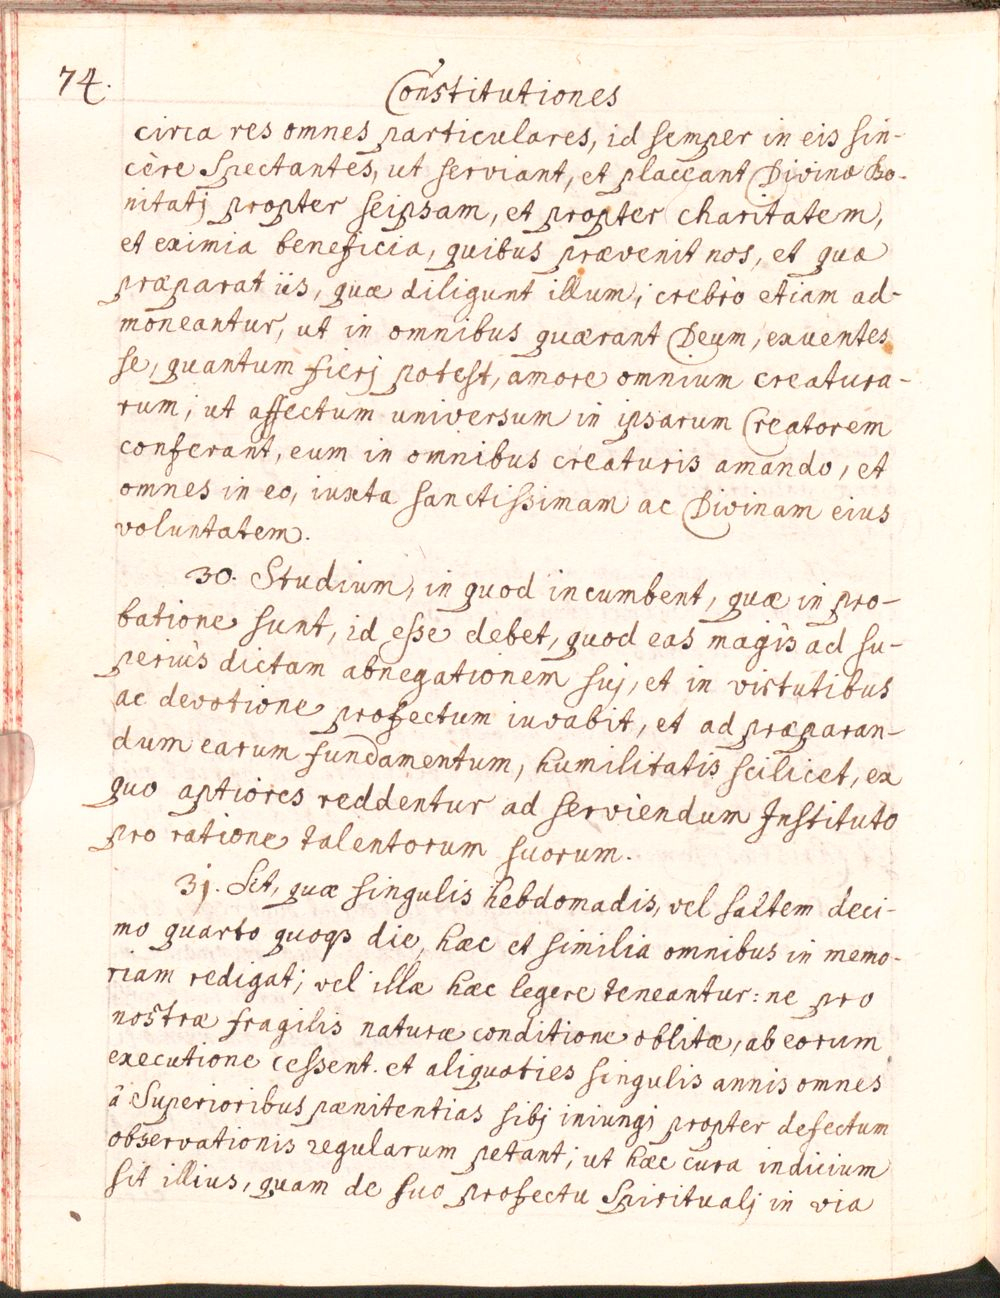 74.
Constitutiones
circa res omnes particulares, id semper in eis sin-
cère Spectantes, ut serviant, et placeant Divinæ Bo-
nitatj propter seipsam, et propter charitatem,
et eximia beneficia, quibus prævenit nos, et quæ
præparat iis, quæ diligunt illum; crebrò etiam ad-
moneantur, ut in omnibus quærant Deum, exuentes
se, quantum fierj potest, amore omnium creatura-
rum; ut affectum universum in ipsarum Creatorem
conferant, eum in omnibus creaturis amando, et
omnes in eo, iuxta sanctissimam ac Divinam eius
voluntatem.
30. Studium, in quod incumbent, quæ in pro-
batione sunt, id esse debet, quod eas magìs ad su-
periùs dictam abnegationem suj, et in virtutibus
ac devotione profectum iuvabit, et ad præparan-
dum earum fundamentum, humilitatis scilicet, ex
quo aptiores reddentur ad serviendum Instituto
pro ratione talentorum suorum.
31. Sit, quæ singulis hebdomadis, vel saltem deci-
mo quarto quoqȝ die, hæc et similia omnibus in memo-
riam redigat; vel illæ hæc legere teneantur: ne pro
nostræ fragilis naturæ conditione oblitæ, ab eorum
executione cessent. et aliquoties singulis annis omnes
â Superioribus pænitentias sibj iniungj propter defectum
observationis regularum petant; ut hæc cura indicium
sit illius, quam de suo profectu Spiritualj in via